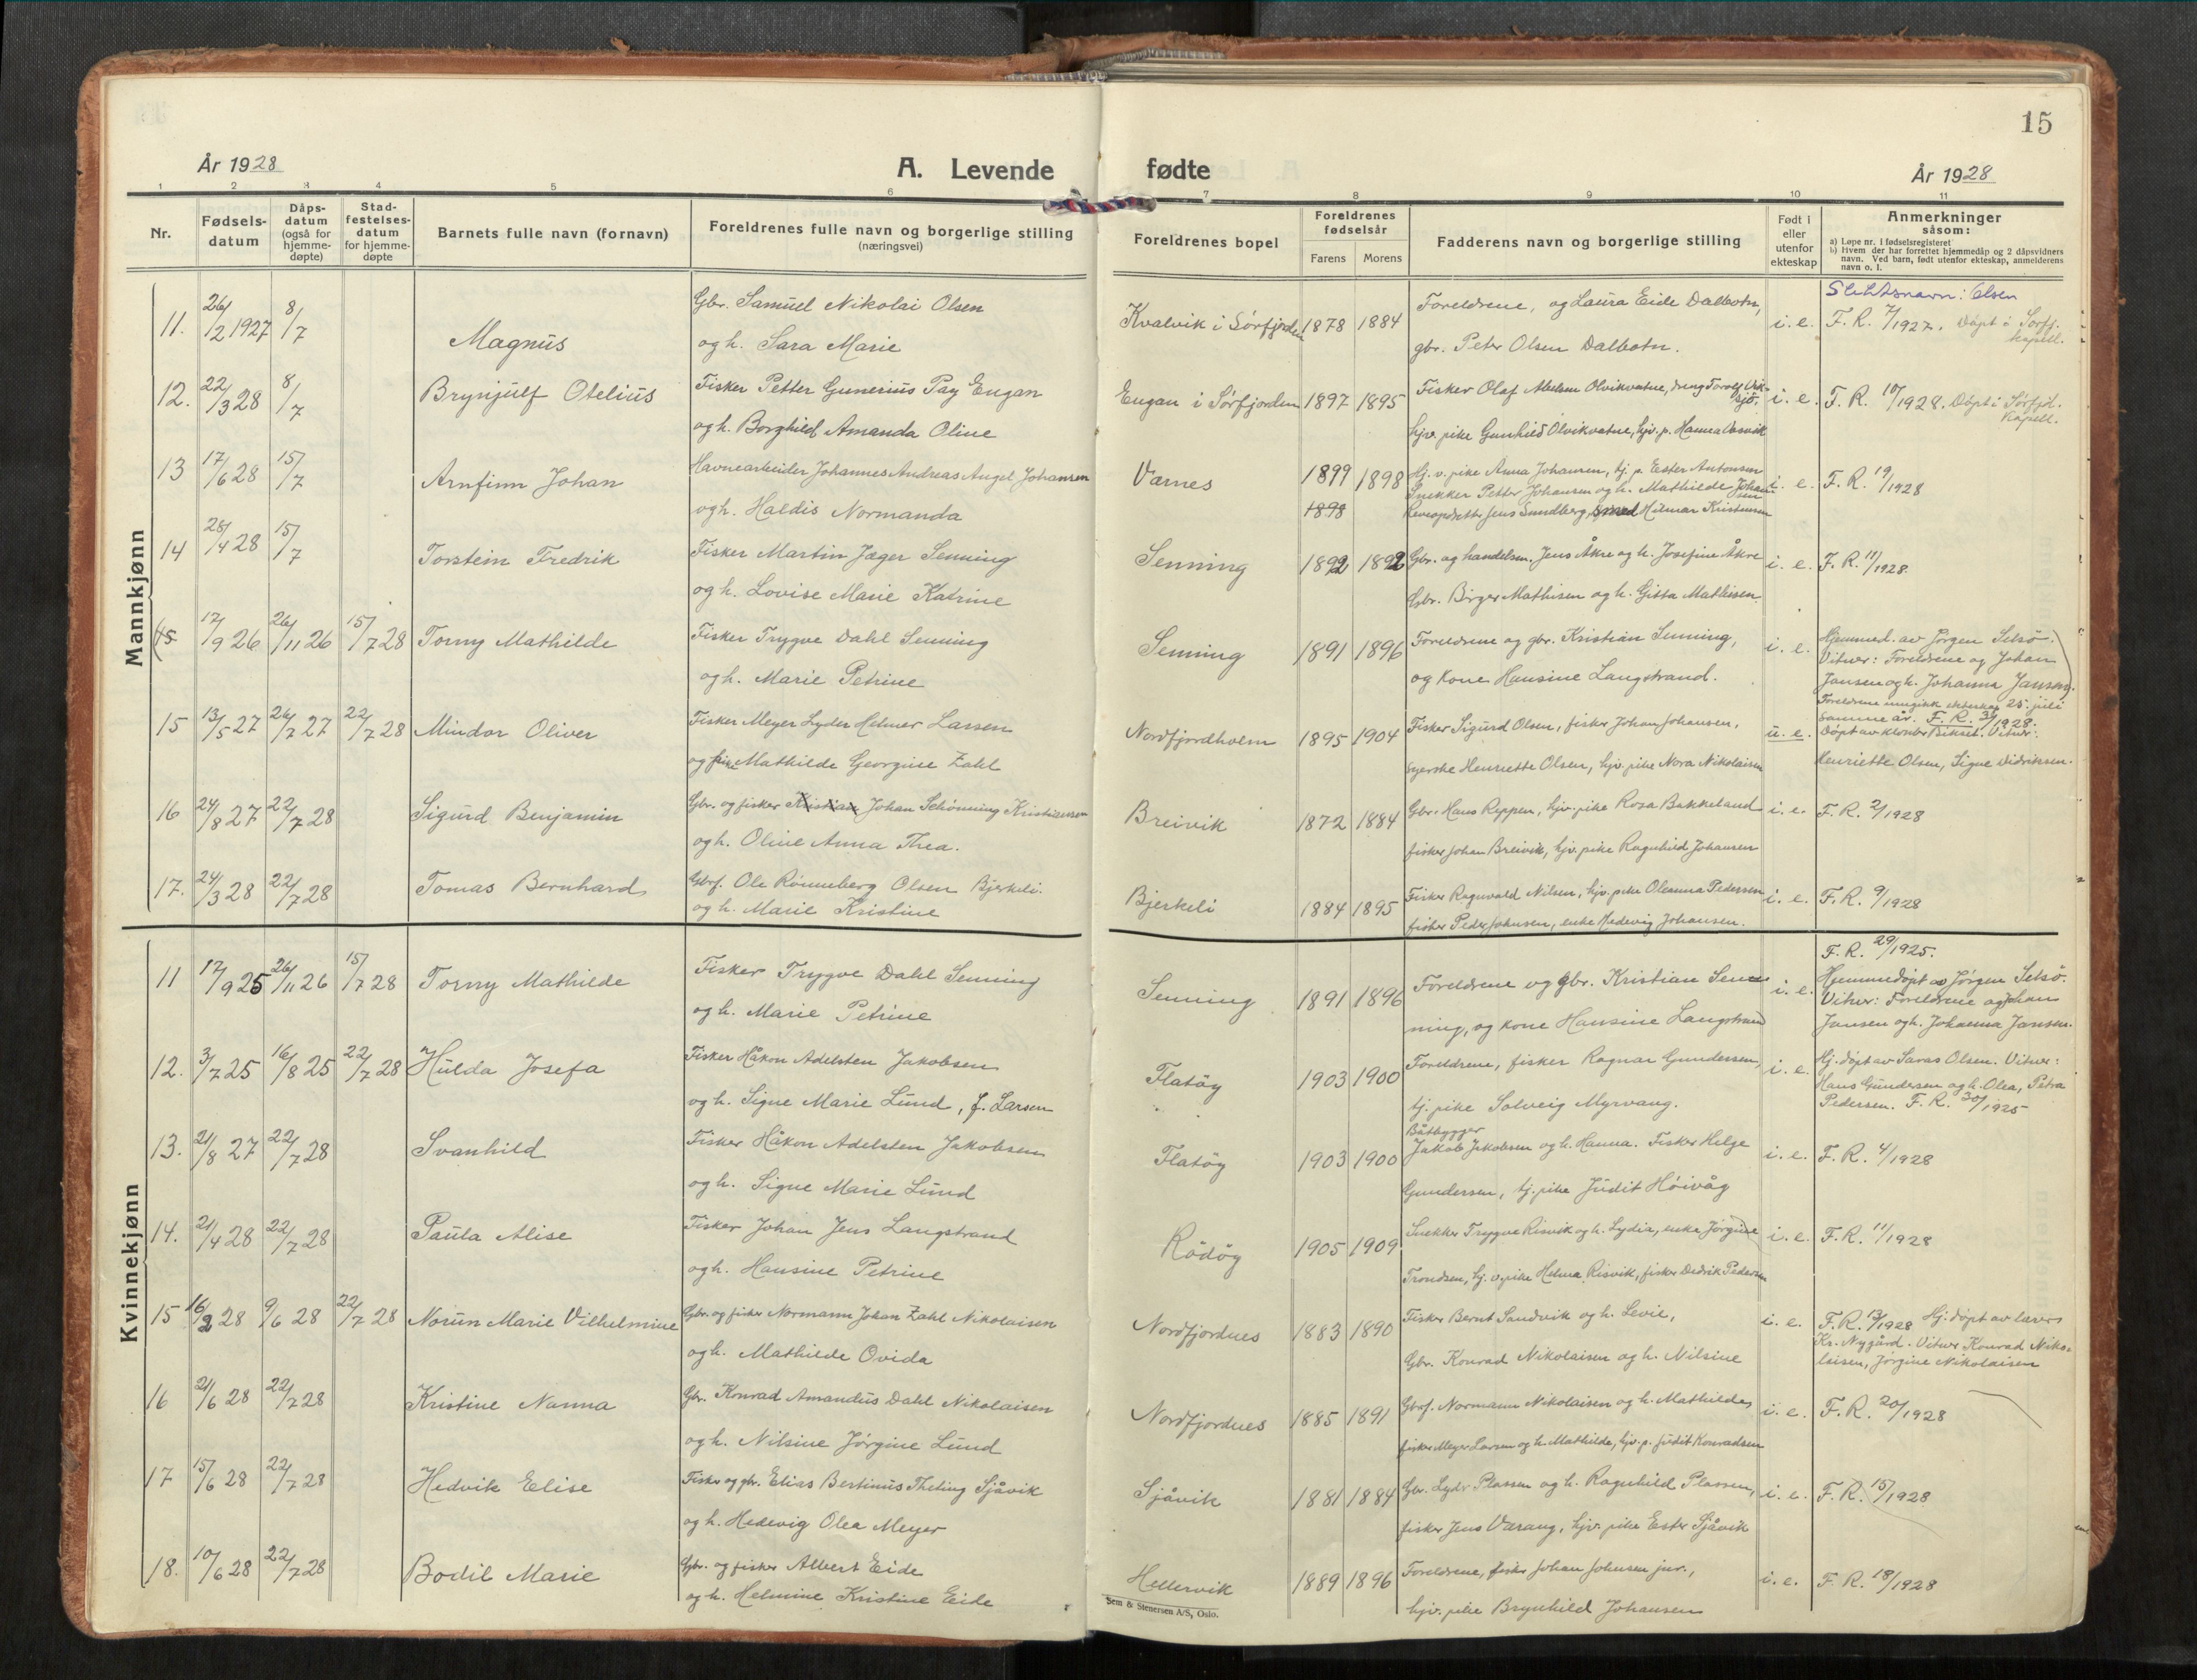 15
År 1928
A. Levende
fødte
År 1928
1 2 3 4 5 6 7 8 9 10 11
Nr.
Fødsels-datum
Dåps-datum (også for hjemme-døpte)
Stad-festelses-datum for hjemme-døpte
Barnets fulle navn (fornavn)
Foreldrenes fulle navn og borgerlige stilling
(næringsvei)
Foreldrenes bopel
Foreldrenes fødselsår
Farens Morens
Fadderens navn og borgerlige stilling
Født i eller utenfor ekteskap
Anmerkninger
såsom:
a) Løpe nr. i fødselsregisteret
b) Hvem der har forrettet hjemmedåp og 2 dåpsvidners
navn. Ved barn, født utenfor ekteskap, anmelderens
navn o. l.
Mannkjønn
11. 26/2 1927 8/7 Magnus
Gbr. Samuel Nikolai Olsen
og h. Sara Marie
Kvalvik i Sørfjorden 1878 1884
Foreldrene, og Laura Eide Dalbotn,
gbr. Peter Olsen Dalbotn.
i. e.
Slektsnavn: Olsen
F. R. 7/1927. Døpt i Sørfj.
kapell.
12. 22/3 28 8/7 Brynjulf Otelius
Fisker Petter Gunerius Pay Engan
og h. Borghild Amanda Oline
Engan i Sørfjorden 1897 1895
Fisker Olaf Olvikvatne, dreng Torolf
hjv. pike Gunhild Olvikvatne, hjv. p. Hanna
i. e.
F. R. 10/1928. Døpt i Sørfjd.
kapell.
13 17/6 28 15/7 Arnfinn Johan
Havnearbeider Johannes Andreas Angel Johansen
og h. Haldis Normanda
Værnes 1899 1898
1898
Hj. v. pike Anna Johansen, tj. p. Ester Antonsen
Snekker Petter Johansen og h. Mathilde Johansen
Jens Sundberg, smed Hilmar Kristensen
i. e.
F. R. 19/1928
14 28/4 28 15/7 Torstein Fredrik
Fisker Martin Jæger Senning
og h. Lovise Marie Katrine
Senning 1892 1892
Gbr. og handelsm. Jens Åkre og h. Josefine Åkre
Gbr. Birger Mathisen og h. Gitta Mathisen.
i. e.
F. R. 11/1928.
(15. 17/9 26 26/11 26 15/7 28 Torny Mathilde
Fisker Trygve Dahl Senning
og h. Marie Petrine
Senning 1891 1896
Foreldrene og gbr. Kristian Senning,
og kone Hansine Langstrand.
i. e.
Hjemmed. av Jørgen Selsö.
Vitner: Foreldrene og Johan
Jansen og h. Johanna Jansen.)
15 13/5 27 26/7 27 22/7 28 Mindor Oliver
Fisker Meyer Lyder Helmer Larsen
og pike Mathilde Georgine Zahl
Nordfjordholm 1895 1904
Fisker Sigurd Olsen, fisker Johan Johansen,
syerske Henriette Olsen, hjv. pike Nora Nikolaisen
u. e.
Foreldrene inngikk ekteskap 25. juli
samme år. F. R. 3/1928.
Døpt av klokker Vitner:
Henriette Olsen, Signe Didriksen.
16 24/8 27 22/7 28 Sigurd Benjamin
Gbr. og fisker Kristian Johan Schönning Kristiansen
og h. Oline Anna Thea.
Breivik 1872 1884
Gbr. Hans Reppen, hjv. pike Rosa Bakkeland
fisker Johan Breivik, hjv. pike Ragnhild Johansen
i. e.
F. R. 2/1928
17. 24/3 28 22/7 28 Tomas Bernhard
Gbrf. Ole Rönneberg Olsen Bjerkeli.
og h. Marie Kristine
Bjerkeli 1884 1895
Fisker Ragnvald Nilsen, hjv. pike Oleanna Pedersen
fisker Peder Johnsen, enke Hedevig Johansen.
i. e.
F. R. 9/1928
Kvinnekjønn
11 17/9 25 26/11 26 15/7 28 Torny Mathilde
Fisker Trygve Dahl Senning
og h. Marie Petrine
Senning 1891 1896
Foreldrene og gbr. Kristian Senn
ning, og kone Hansine Langstrand
i. e.
F. R. 29/1925.
Hjemmedøpt av Jørgen Selsö.
Vitner: Foreldrene og Johan
Jansen og h. Johanna Jansen.
12. 3/7 25 16/8 25 22/7 28 Hulda Josefa
Fisker Håkon Adelsten Jakobsen
og h. Signe Marie Lund, f. Larsen
Flatöy 1903 1900
Foreldrene, fisker Ragnar Gundersen,
tj. pike Solveig Myrvang.
i. e.
Hj. døpt av Saras Olsen. Vitner:
Hans Gundersen og h. Olea, Petra
Pedersen. F. R. 30/1925
13. 21/8 27 22/7 28 Svanhild
Fisker Håkon Adelsten Jakobsen
og h. Signe Marie Lund
Flatöy 1903 1900
Båtbygger
Jakob Jakobsen og h. Hanna. Fisker Helge
Gundersen, tj. pike Judit Höivåg
i. e.
F. R. 4/1928
14. 21/4 28 22/7 28 Paula Alise
Fisker Johan Jens Langstrand
og h. Hansine Petrine
Rödöy 1905 1909
Snekker Trygve Risvik og h. Lydia, enke Jørgine
Trondsen, hj. v. pike Helma Risvik, fisker Didrik Pedersen
i. e.
F. R. 11/1928
15 16/2 28 9/6 28 22/7 28 Norun Marie Vilhelmine
Gbr. og fisker Normann Johan Zahl Nikolaisen
og h. Mathilde Ovida
Nordfjordnes 1883 1890
Fisker Bernt Sandvik og h. Levie,
Gbr. Konrad Nikolaisen og h. Nilsine
i. e.
F. R. 13/1928 Hj. døpt av lærer
Kr. Nygård. Vitner Konrad Niko-
laisen, Jørgine Nikolaisen
16 21/6 28 22/7 28 Kristine Nanna
Gbr. Konrad Amandus Dahl Nikolaisen
og h. Nilsine Jørgine Lund
Nordfjordnes 1885 1891
Gbrf. Normann Nikolaisen og h. Mathilde,
fisker Meyer Larsen og h. Mathilde, hjv. p. Judit Konradsen
i. e.
F. R. 20/1928
17 15/6 28 22/7 28 Hedvik Elise
Fisker og gbr. Elias Bertinus Theting Sjåvik
og h. Hedevig Olea Meyer
Sjåvik 1881 1884
Gbr. Lyder Plassen og h. Ragnhild Plassen,
fisker Jens Værang, hjv. pike Ester Sjåvik
i. e.
F. R. 15/1928
18. 10/6 28 22/7 28 Bodil Marie
Gbr. og fisker Albert Eide
og h. Helmine Kristine Eide
Hellervik 1889 1896
Foreldrene, fisker Johan Johnsen jur.,
hjv. pike Brynhild Johansen
i. e.
F. R. 18/1928
Sem & Stenersen A/S, Oslo.